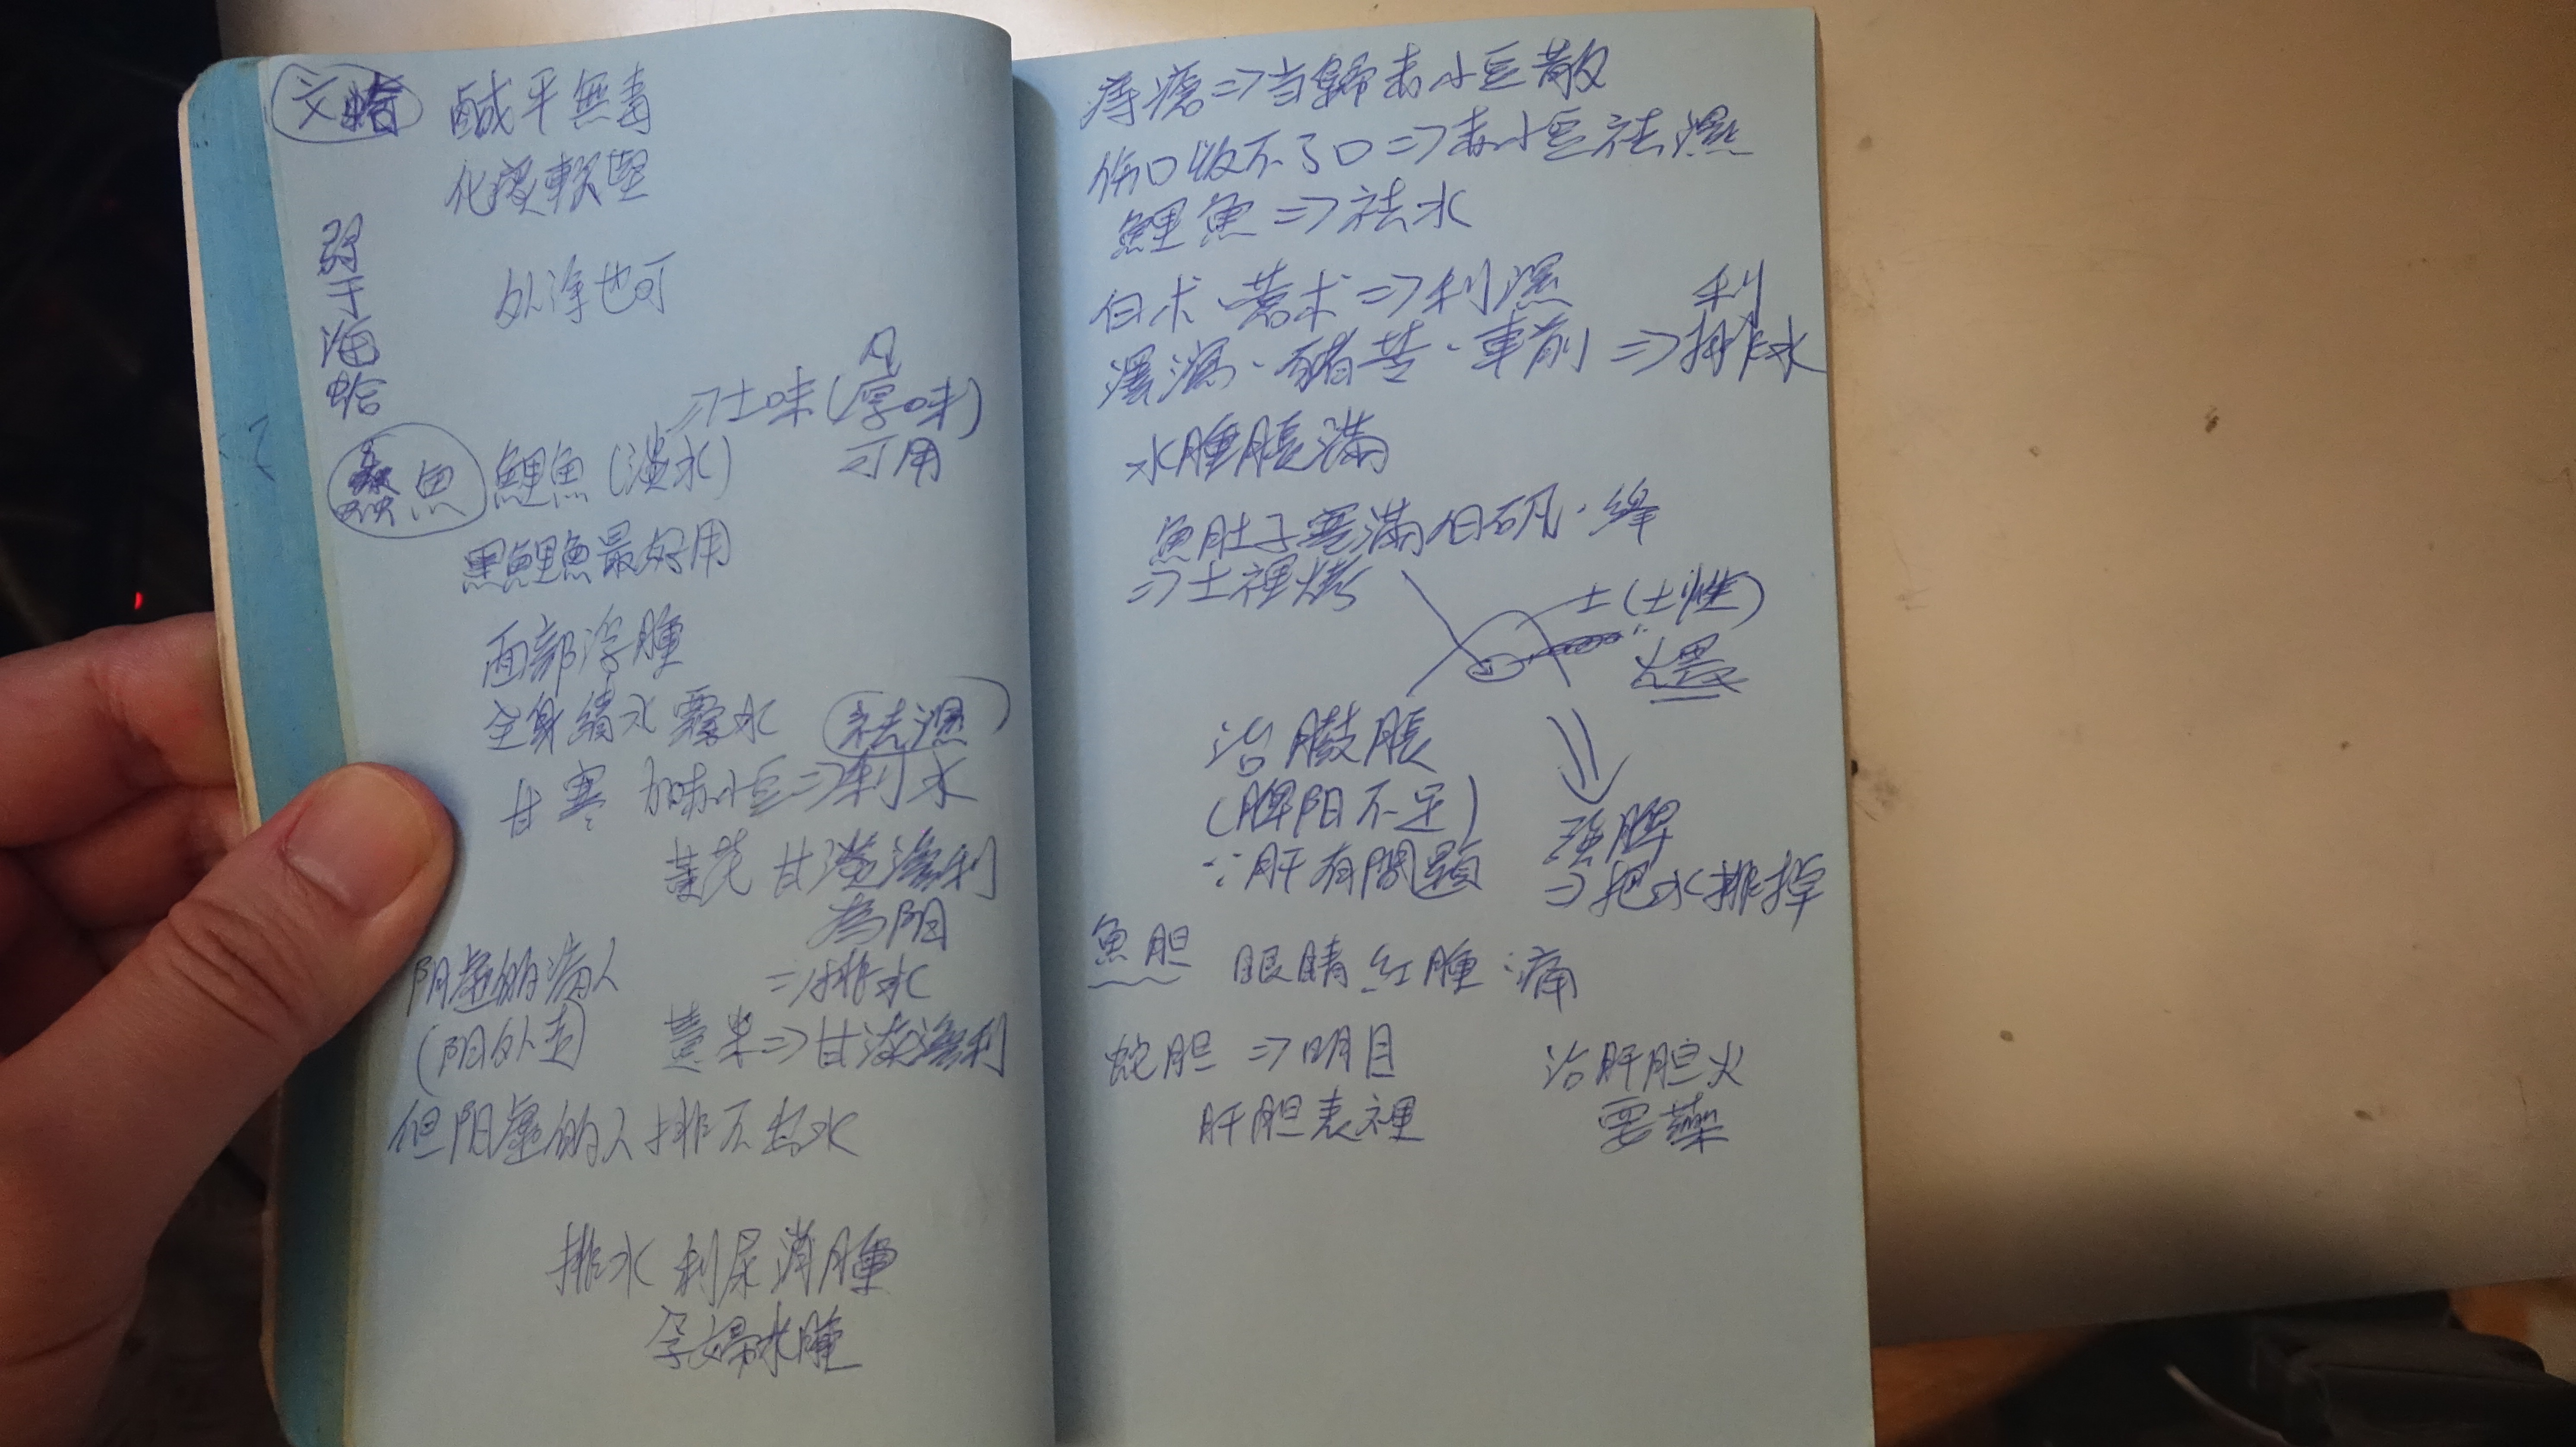 文蛤 鹹平無毒
化痰軟堅
弱于海蛤
外塗也可
⇒土味(厚味)
凡
可用
蠡魚 鯉魚(淡水)
黑鯉魚最好用
面部浮腫
全身積水 祛濕
甘寒 加赤小豆⇒利水
黃芪 甘淡滲利
為陽
⇒排水
阴虛的病人
(陽外走)
薏米⇒甘淡滲利
但阴虛的人排不出水
排水 利尿 消腫
孕婦水腫
痔瘡⇒当歸赤小豆散
伤口收不了口⇒赤小豆祛濕
鯉魚⇒祛水
白朮、蒼朮⇒利濕
澤瀉、豬苓、車前⇒排水
利
水腫脹滿
魚肚子塞滿白矾
⇒土裡烤
土(土性)
火煨
治臌脹
(脾陽不足)
∵肝有問題
強脾
⇒把水排掉
魚胆 眼睛紅腫、痛
蛇胆⇒明目
肝胆表裡
治肝胆火
要藥